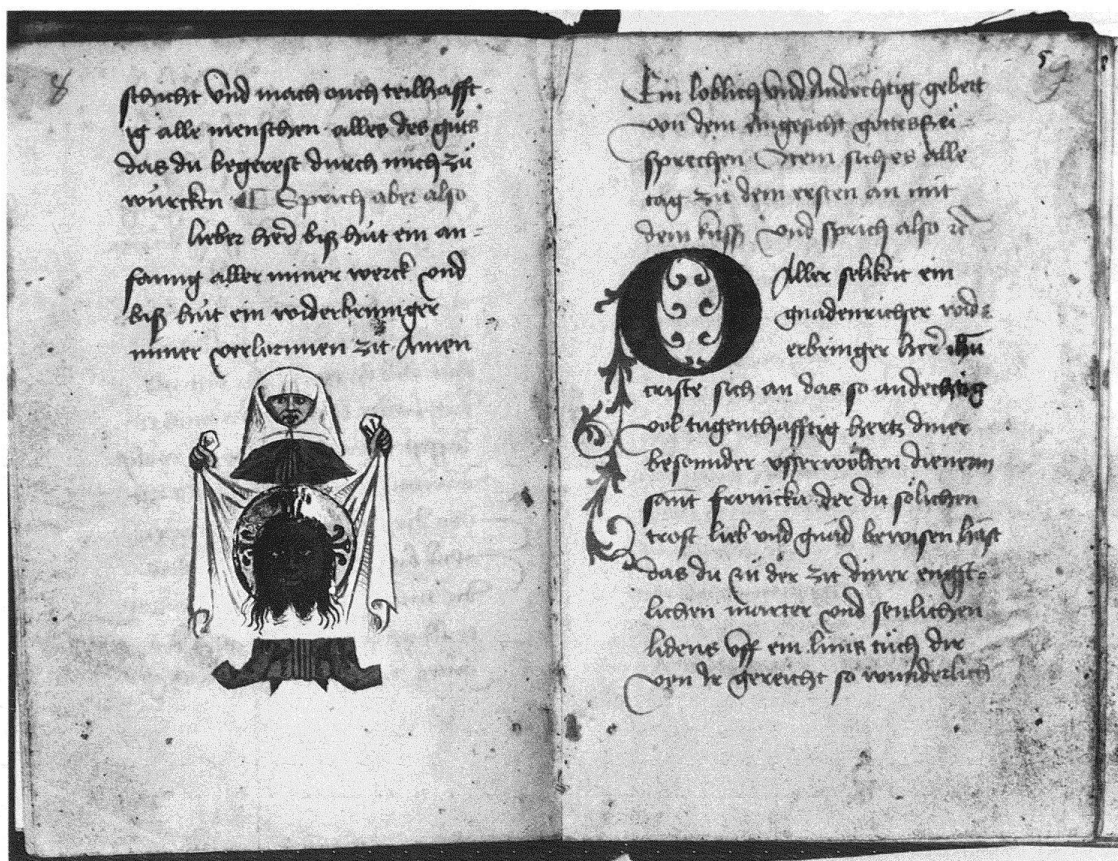 8
schicht vnd mach ouch teilhafft-
ig alle menschen alles des guts
das du begerest durch mich zů
würcken ¶ Sprich aber also
lieber her biß hüt ein an-
fanng aller miner werck vnd
biß hüt ein widerbringer
miner verlornnen zit Amen
5
Ein loblich vnd andechtig gebett
von dem angesicht gottes
sprechen Item sich es alle
tag zü dem ersten an mit
dem kuss vnd sprich also
O Aller selikeit ein
gnadenricher wid-
erbringer her ihu
criste sich an das so andechtig
vol tugenthafftig hertz diner
besonnder vsserwölten dienerin
sant fronicka der du sölichen
trost lieb vnd gnad bewisen hast
das du zu der zit diner engst-
lichen marter vnd senlichen
lidens vff ein linis tůch dir
von Ir gereicht so wunderlich